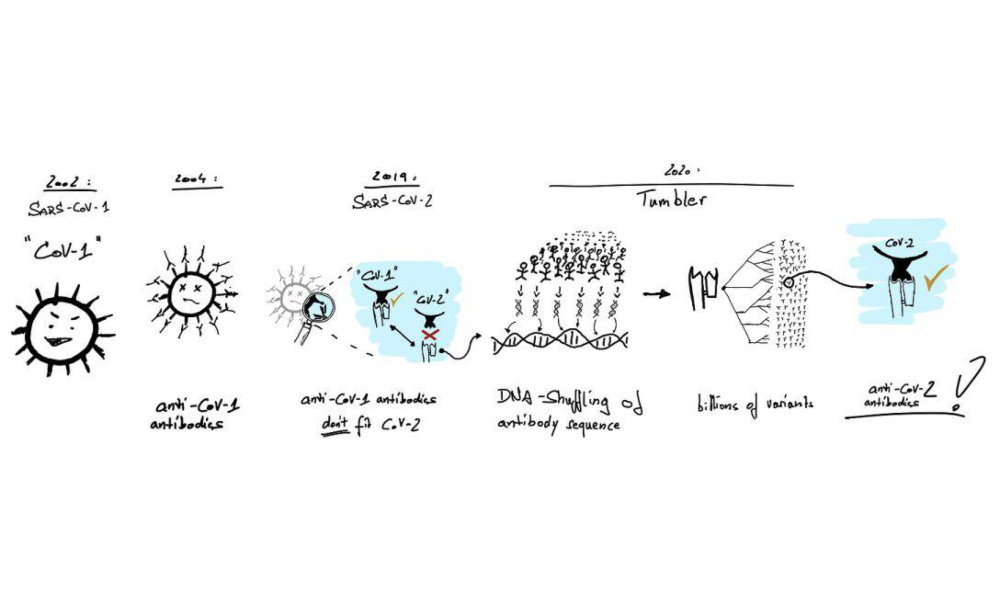 2002:
SARS-CoV-1
"CoV-1"
2004:
anti-CoV-1
antibodies
2019:
SARS-CoV-2
"CoV-1"
"CoV-2"
anti-CoV-1 antibodies
don't fit CoV-2
2020:
Tumbler
DNA-Shuffling of
antibody sequence
billions of variants
CoV-2
anti-CoV-2
antibodies
!